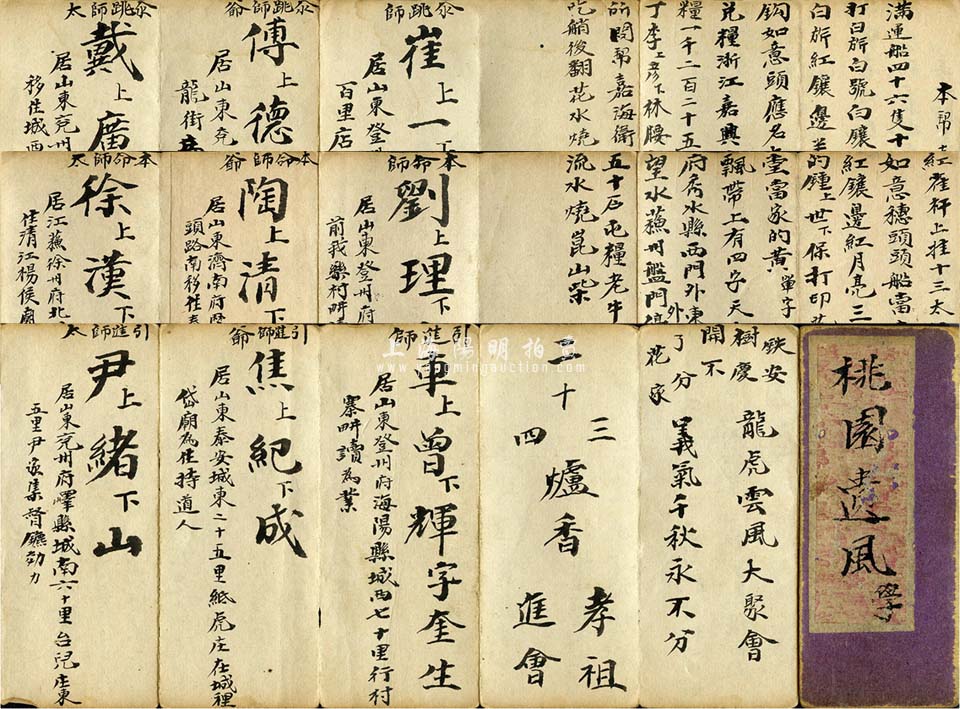 本幫
滿運船四十六隻十
白號白鑲
紅鑲邊半
鈎如意頭應名
兌糧浙江嘉興
糧一千二百二十五
丁李上彥下林腰
幫嘉海衛
吃艄後翻花水燒
跳師
崔上一下
居山東登州
百里店
跳師爺
傅上德
居山東兗
龍街
跳師太
戴上廣
居山東兗州
移住城西
紅雀杆上挂十三太
如意穗頭頭船當
紅鑲邊紅月亮三
的鍾上世下保打印
堂當家的黃單字
飄帶上有四字天
府秀水縣西門外東
望水蘇州盤門外
五十石屯糧老牛
流水燒崑山柴
本命師
劉上理下
居山東登州府
前我樂村耕
本命師爺
陶上清下
居山東濟南府歷
頭路南移住
本命師太
徐上漢下
居江蘇徐州府北
住清江楊侯廟
桃園遺風
鉄安
樹慶
開不
了分
花家
龍虎雲風大聚會
義氣千秋永不分
三孝祖
二十爐香
四進會
引進師
車上曾下輝字奎生
居山東登州府海陽縣城西七十里行村
寨耕讀為業
引進師爺
焦上紀下成
居山東泰安城東二十五里紙虎庄在城裡
岱廟為住持道人
引進師太
尹上緒下山
居山東兗州府嶧縣城南六十里台兒庄東
五里尹家集督鑣効力
上海陽明拍賣
www.yangmingauction.com